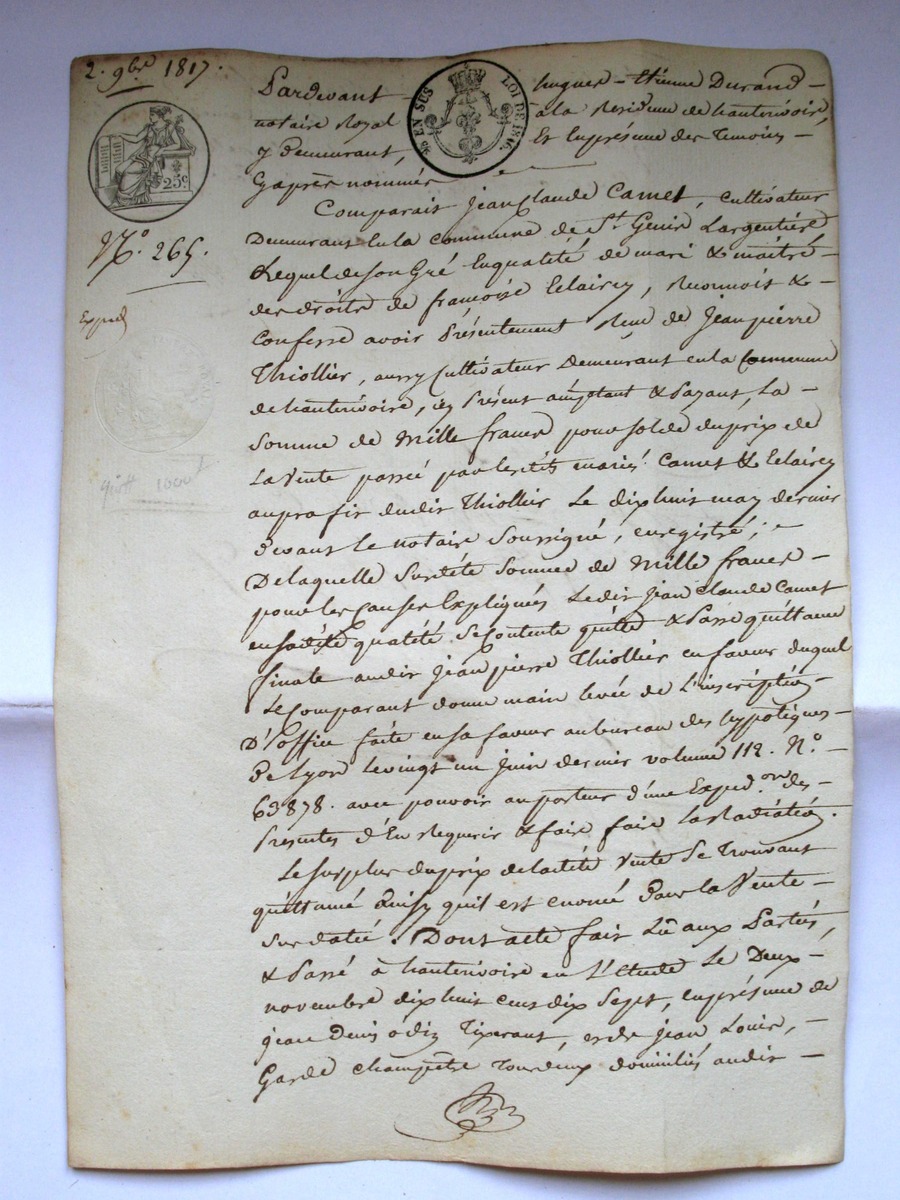 2. 9bre 1817.
Pardevant hugues - Etienne Durand -
notaire Royal à la Residence de hauterivoire,
EN SUS LOI DE 1816.
y demeurant, Et En présence des Temoins -
Cy après nommés
25c.
N.o 265.
Comparait Jean Claude Camet, cultivateur
Demeurant En la commune de St. Genis Largentière
Lequel de son Gré En qualité de mari & maître -
des droits de françoise Eclairey, Reconnoit & -
Confesse avoir Présentement Recu de Jean pierre
Exped
Thiollier, aussy Cultivateur Demeurant en la Commune
de hauterivoire, icy Présent acceptant & Payant, La -
Somme de Mille francs pour solde du prix de
La Vente passée par les dits mariés Camet & Eclairey
1000
au profit dudit Thiollier Le dix huit may dernier
devant le notaire Soussigné, enregistré; -
De laquelle Susdite Somme de Mille francs -
pour les Causes Expliquées Ledit Jean Claude Camet
en sadite qualité Se Contente quitte & Passe quittance
finale audit Jean pierre Thiollier en faveur duquel
Le Comparant donne main levée de L'inscription
D'office faite en sa faveur au bureau des hypotèques -
de Lyon le vingt un Juin dernier volume 112. N.o -
63878. avec pouvoir au porteur d'une Exped.on des -
Presentes d'En Requerir & faire faire La Radiation.
Le Surplus du prix de ladite Vente Se Trouvant
quittancé Ainsy qu'il est enoncé Dans la Vente -
Sus datée. Dont acte fait Lû aux Parties,
& Passé à hauterivoire en L'étude Le Deux -
novembre dix huit cent dix Sept, en présence de
jean Denis odin Tixerant, et de Jean Louis, -
Garde champêtre Tous deux domiciliés audit -